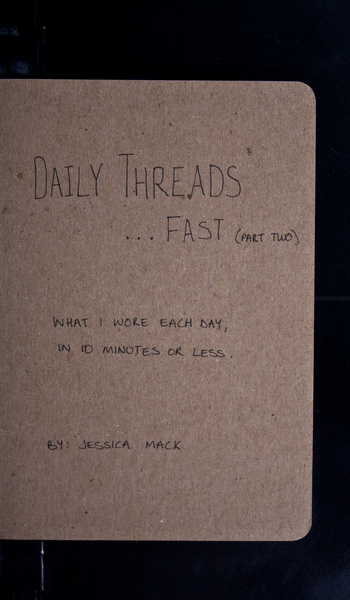 DAILY THREADS
... FAST (PART TWO)
WHAT I WORE EACH DAY,
IN 10 MINUTES OR LESS.
BY: JESSICA MACK